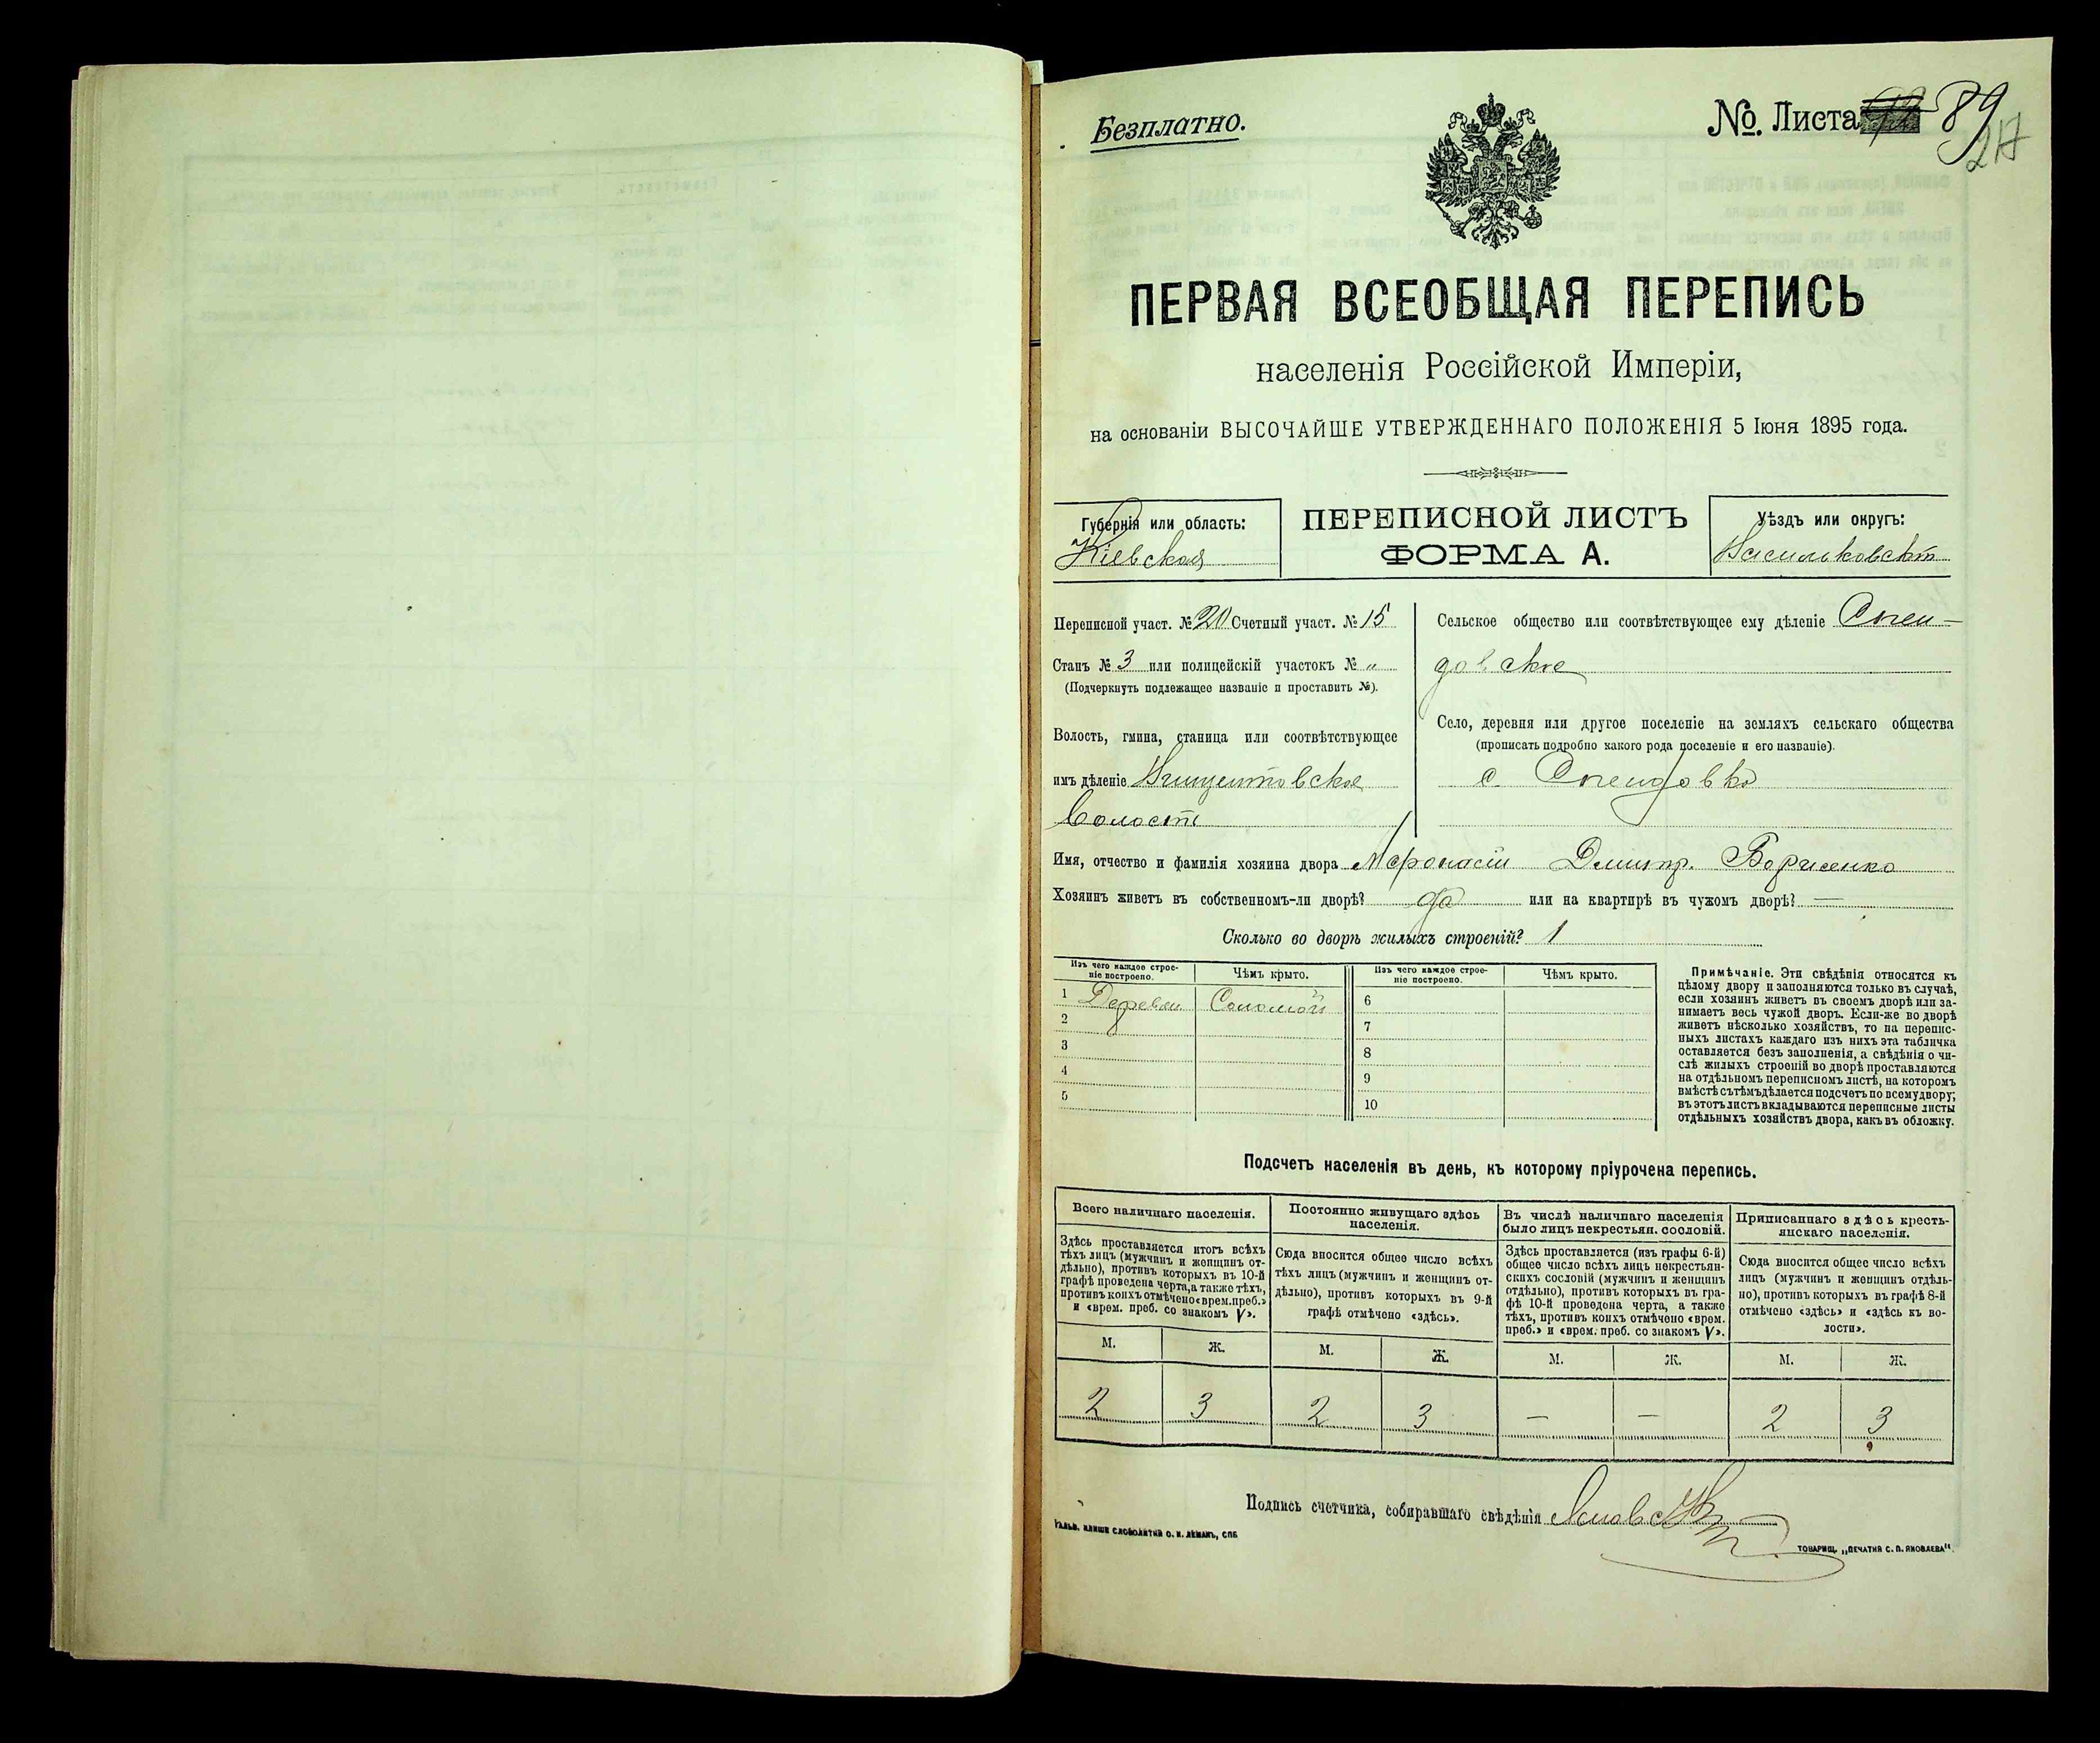 Безплатно.
№. Листа 89
217
ПЕРВАЯ ВСЕОБЩАЯ ПЕРЕПИСЬ
населенія Россійской Имперіи,
на основаніи ВЫСОЧАЙШЕ УТВЕРЖДЕННАГО ПОЛОЖЕНІЯ 5 Іюня 1895 года.
Губернія или область:
Кіевская
ПЕРЕПИСНОЙ ЛИСТЪ
ФОРМА А.
Уѣздъ или округъ:
Васильковскій
Переписной участ. № 20 Счетный участ. № 15
Станъ № 3 или полицейскій участокъ № „
(Подчеркнуть подлежащее названіе и проставить №).
Волость, гмина, станица или соотвѣтствующее
имъ дѣленіе
Волость
Сельское общество или соотвѣтствующее ему дѣленіе Спен-
довское
Село, деревня или другое поселеніе на земляхъ сельскаго общества
(прописать подробно какого рода поселеніе и его названіе).
с. Спендовка
Имя, отчество и фамилія хозяина двора Афонасій Дмитр. Борисенко
Хозяинъ живетъ въ собственномъ-ли дворѣ? да или на квартирѣ въ чужомъ дворѣ? —
Сколько во дворѣ жилыхъ строеній? 1
Изъ чего каждое строе-
ніе построено.
Чѣмъ крыто.
1 Деревян Соломой
2
3
4
5
Изъ чего каждое строе-
ніе построено.
Чѣмъ крыто.
6
7
8
9
10
Примѣчаніе. Эти свѣдѣнія относятся къ
цѣлому двору и заполняются только въ случаѣ,
если хозяинъ живетъ въ своемъ дворѣ или за-
нимаетъ весь чужой дворъ. Если-же во дворѣ
живетъ нѣсколько хозяйствъ, то на перепис-
ныхъ листахъ каждаго изъ нихъ эта табличка
оставляется безъ заполненія, а свѣдѣнія о чи-
слѣ жилыхъ строеній во дворѣ проставляются
на отдѣльномъ переписномъ листѣ, на которомъ
вмѣстѣ съ тѣмъ дѣлается подсчетъ по всему двору;
въ этотъ листъ вкладываются переписные листы
отдѣльныхъ хозяйствъ двора, какъ въ обложку.
Подсчетъ населенія въ день, къ которому пріурочена перепись.
Всего наличнаго населенія.
Здѣсь проставляется итогъ всѣхъ
тѣхъ лицъ (мужчинъ и женщинъ от-
дѣльно), противъ которыхъ въ 10-й
графѣ проведена черта, а также тѣхъ,
противъ коихъ отмѣчено «врем. преб.»
и «врем. преб. со знакомъ V».
М. Ж.
2 3
Постоянно живущаго здѣсь
населенія.
Сюда вносится общее число всѣхъ
тѣхъ лицъ (мужчинъ и женщинъ от-
дѣльно), противъ которыхъ въ 9-й
графѣ отмѣчено «здѣсь».
М. Ж.
2 3
Въ числѣ наличнаго населенія
было лицъ некрестьян. сословій.
Здѣсь проставляется (изъ графы 6-й)
общее число всѣхъ лицъ некрестьян-
скихъ сословій (мужчинъ и женщинъ
отдѣльно), противъ которыхъ въ гра-
фѣ 10-й проведена черта, а также
тѣхъ, противъ коихъ отмѣчено «врем.
преб.» и «врем. преб. со знакомъ V».
М. Ж.
— —
Приписаннаго здѣсь кресть-
янскаго населенія.
Сюда вносится общее число всѣхъ
лицъ (мужчинъ и женщинъ отдѣль-
но), противъ которыхъ въ графѣ 8-й
отмѣчено «здѣсь» и «здѣсь къ во-
лости».
М. Ж.
2 3
Подпись счетчика, собиравшаго свѣдѣнія
Гальв. клише словолитни О. И. Леманъ, СПБ
ТОВАРИЩ. „ПЕЧАТНЯ С. П. ЯКОВЛЕВА".